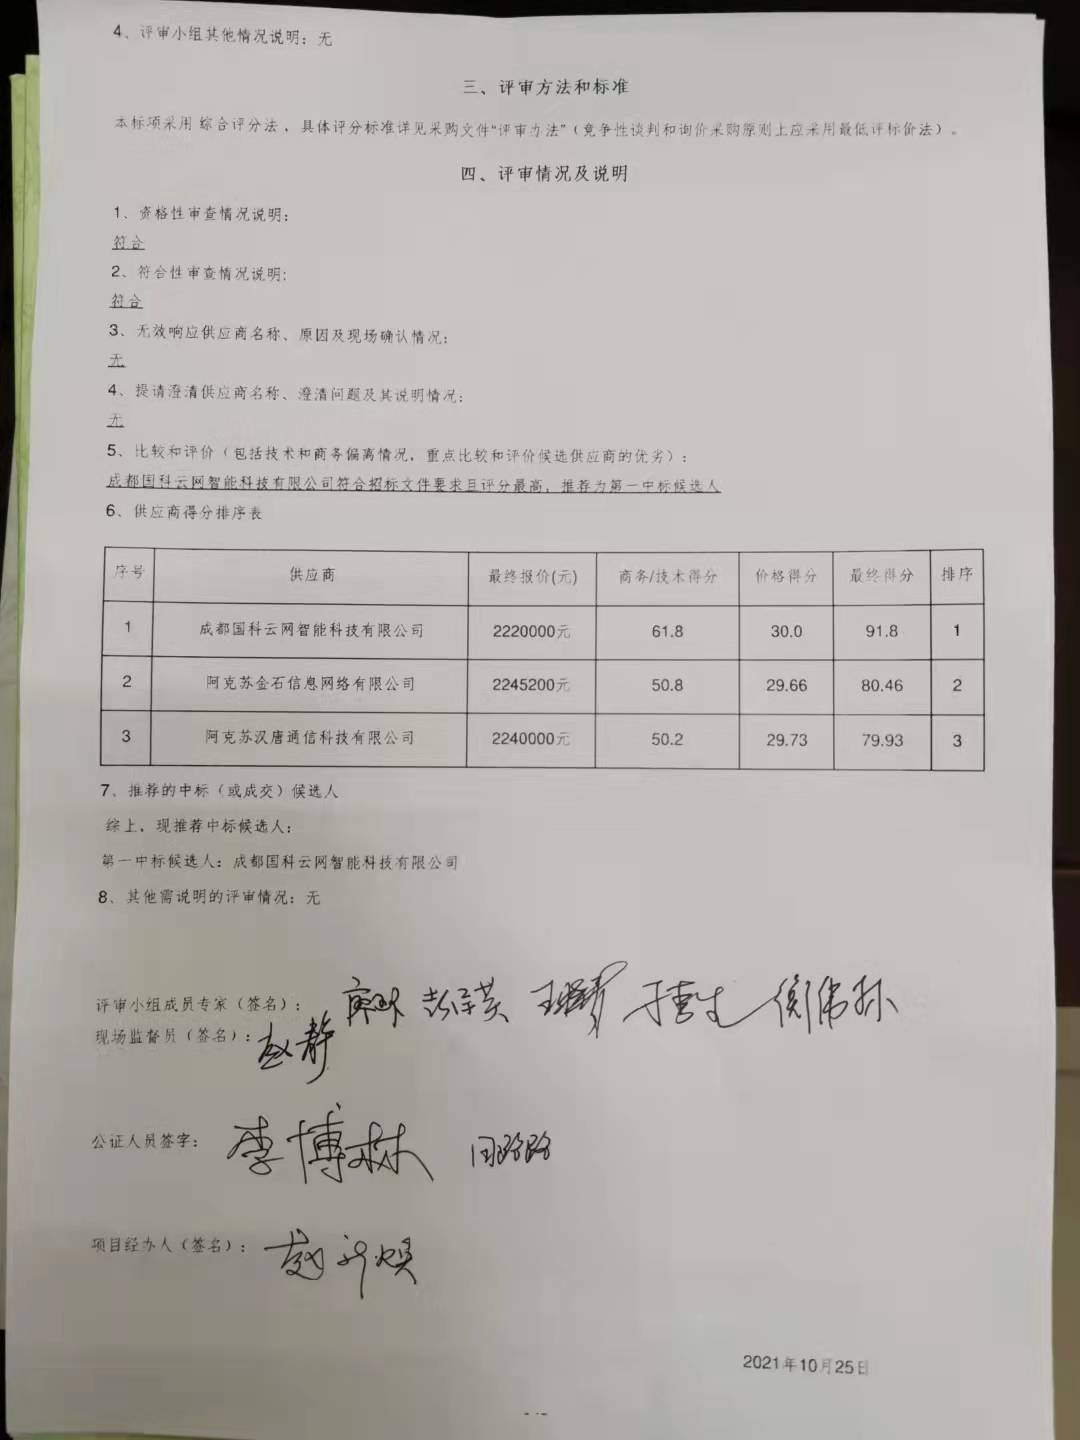 4、评审小组其他情况说明：无
三、评审方法和标准
本标项采用 综合评分法 ，具体评分标准详见采购文件“评审办法”（竞争性谈判和询价采购原则上应采用最低评标价法）。
四、评审情况及说明
1、资格性审查情况说明：
符合
2、符合性审查情况说明：
符合
3、无效响应供应商名称、原因及现场确认情况：
无
4、提请澄清供应商名称、澄清问题及其说明情况：
无
5、比较和评价（包括技术和商务偏离情况，重点比较和评价候选供应商的优劣）：
成都国科云网智能科技有限公司符合招标文件要求且评分最高，推荐为第一中标候选人
6、供应商得分排序表
序号 供应商 最终报价(元) 商务/技术得分 价格得分 最终得分 排序
1 成都国科云网智能科技有限公司 2220000元 61.8 30.0 91.8 1
2 阿克苏金石信息网络有限公司 2245200元 50.8 29.66 80.46 2
3 阿克苏汉唐通信科技有限公司 2240000元 50.2 29.73 79.93 3
7、推荐的中标（或成交）候选人
综上，现推荐中标候选人：
第一中标候选人：成都国科云网智能科技有限公司
8、其他需说明的评审情况：无
评审小组成员专家（签名）：
现场监督员（签名）：赵静
公证人员签字：李博林
项目经办人（签名）：
2021年10月25日